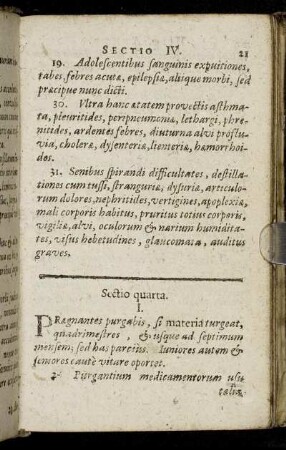 SECTIO IV. 21
29. Adolescentibus sanguinis expuitiones,
tabes, febres acutæ, epilepsiæ, aliique morbi, sed
præcipue nunc dicti.
30. Vltra hanc ætatem provectis asthma-
ta, pleuritides, peripneumoniæ, lethargi, phre-
nitides, ardentes febres, diuturna alvi proflu-
via, choleræ, dysenteriæ, lienteriæ, hæmorrhoi-
des.
31. Senibus spirandi difficultates, destilla-
tiones cum tussi, stranguriæ, dysuriæ, articulo-
rum dolores, nephritides, vertigines, apoplexiæ,
mali corporis habitus, pruritus totius corporis,
vigiliæ, alvi, oculorum & narium humidita-
tes, visus hebetudines, glaucomata, auditus
graves.
Sectio quarta.
I.
PRægnantes purgabis, si materia turgeat,
quadrimestres, & usque ad septimum
mensem; sed has parcius. Iuniores autem &
seniores cautè vitare oportet.
2. Purgantium medicamentorum usu
talia